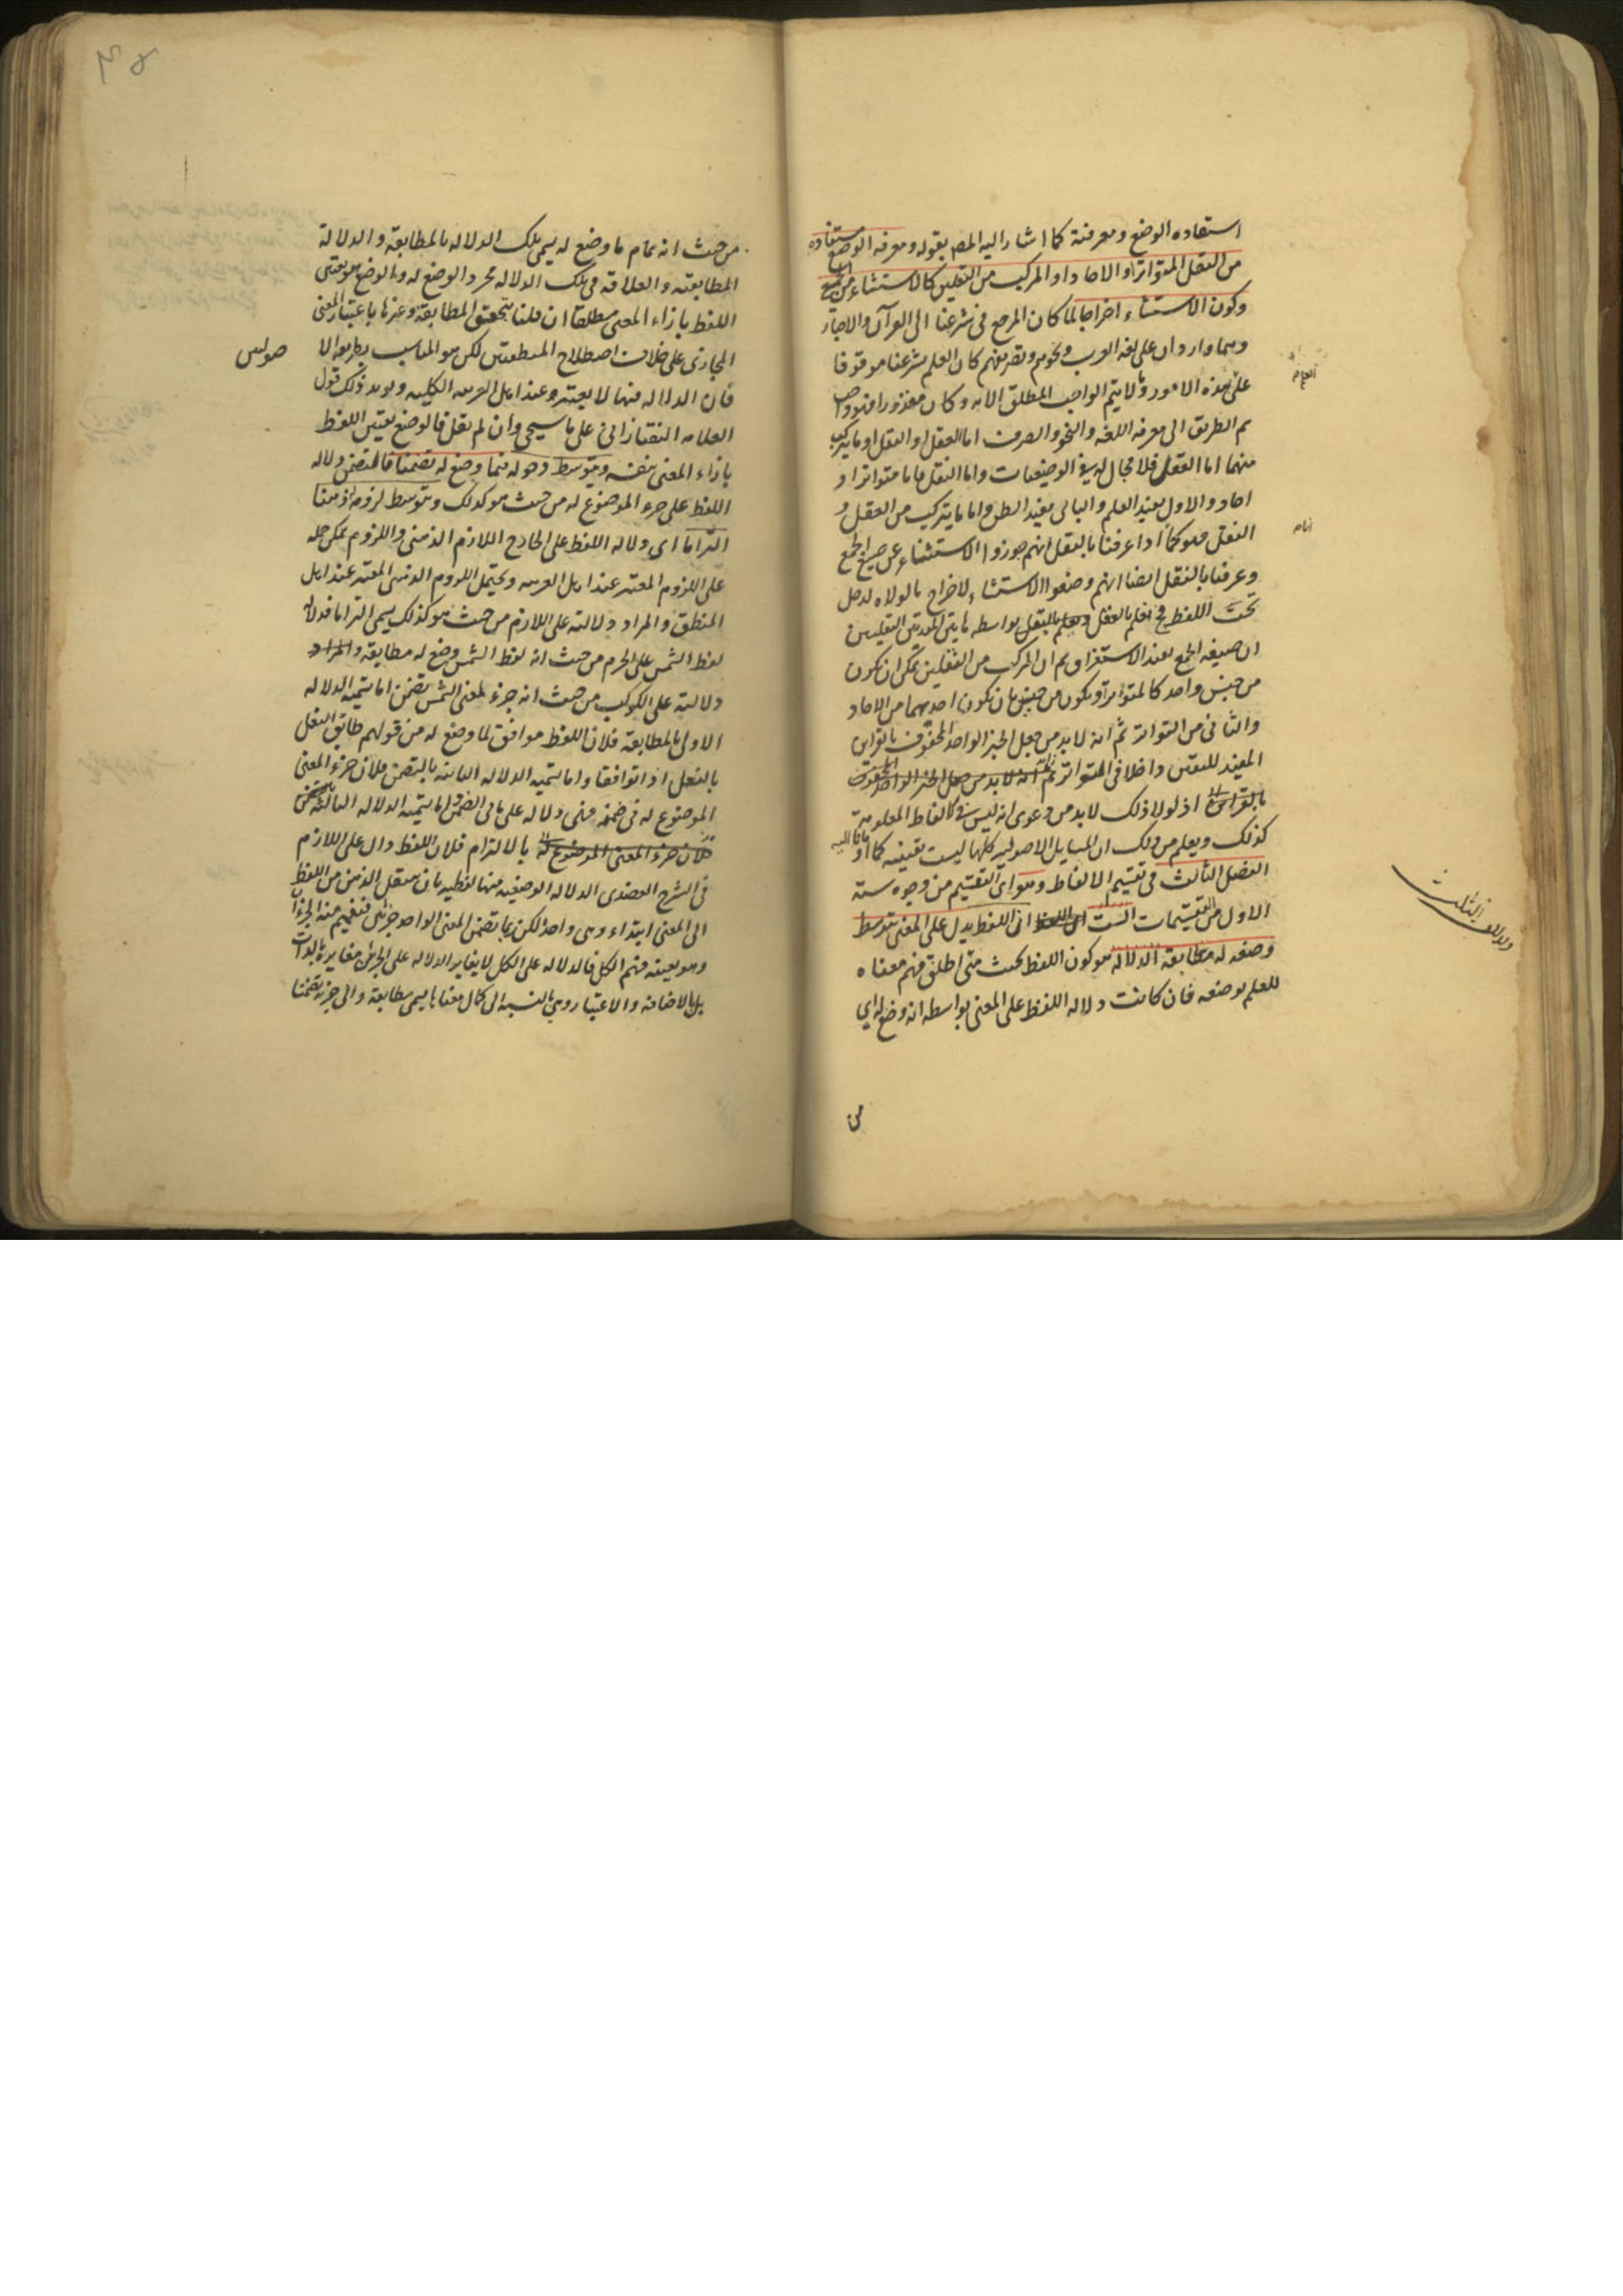 استفاده الوضع ومعرفته كما اشار اليه المص بقوله ومعرفه الوضع مستفاده
من النقل المتواتر او الاحاد او المركب من النقلين كالاستثناء من الجمع
وكون الاستثناء اخراجا لما كان المرجع فى شرعنا الى القرآن والاخبار
وهما واردان على لغه العرب ونحوهم وتصريفهم كان العلم بشرعنا موقوفا
على هذه الامور وما لا يتم الواجب المطلق الا به وكان مقدورا فهو واجب
ثم الطريق الى معرفه اللغه والنحو والصرف اما العقل او النقل او ما يتركب
منهما اما العقل فلا مجال له فى الوضعيات واما النقل فاما متواتر او
احاد والاول يفيد العلم والثانى يفيد الظن واما ما يتركب من العقل و
النقل فهو كما اذا عرفنا بالنقل انهم جوزوا الاستثناء عن صيغ الجمع
وعرفنا بالنقل ايضا انهم وضعوا الاستثناء لاخراج ما لولاه لدخل
تحت اللفظ فح نعلم بالعقل بواسطه هاتين المقدمتين النقليتين
ان صيغه الجمع تفيد الاستغراق ثم ان المركب من النقلين يمكن ان يكون
من جنس واحد كالمتواتر او يكون من جنسين بان يكون احدهما من الاحاد
والثانى من التواتر ثم انه لا بد من جعل الخبر الواحد المحفوف بالقراين
المفيد لليقين داخلا فى المتواتر ثم انه لا بد من جعل الخبر الواحد المحفوف
بالقراين اذ لولا ذلك لا بد من دعوى انه ليس فى الالفاظ المعلومة
كذلك ويعلم من ذلك ان المسايل الاصوليه كلها ليست يقينيه كما
الفصل الثالث فى تقسيم الالفاظ وهو اى التقسيم من وجوه ستة
الاول من التقسيمات الست ان اللفظ يدل على المعنى بتوسط
وضعه له مطابقة الدلالة هو كون اللفظ بحيث متى اطلق فهم معناه
للعلم بوضعه فان كانت دلاله اللفظ على المعنى بواسطه انه وضع له اى
من
من حيث انه تمام ما وضع له يسمى تلك الدلاله بالمطابقة والدلالة
المطابقيه والعلاقه فى تلك الدلاله مجرد الوضع له والوضع هو تعيين
اللفظ بازاء المعنى مطلقا ان قلنا بتحقق المطابقة وغيرها باعتبار المعنى
المجازى على خلاف اصطلاح المنطقيين لكن هو المناسب
فان الدلاله فيها لا يعتبر وعند اهل العربيه الكليه ويويد ذلك قول
العلامه التفتازانى على ما سيجى وان لم نقل فالوضع تعيين اللفظ
بازاء المعنى بنفسه وبتوسط دخوله فيما وضع له تضمنا فالتضمن دلاله
اللفظ على جزء الموضوع له من حيث هو كذلك وبتوسط لزومه ذهنا
التزاما اى دلاله اللفظ على الخارج اللازم الذهنى واللزوم يمكن حمله
على اللزوم المعتبر عند اهل العربيه ويحتمل اللزوم الذهنى المعتبر عند اهل
المنطق والمراد دلالته على اللازم من حيث هو كذلك يسمى التزاما فدلاله
لفظ الشمس على الجرم من حيث انه لفظ الشمس وضع له مطابقه والمراد
دلالته على الكوكب من حيث انه جزء لمعنى الشمس تضمن اما تسميه الدلاله
الاولى بالمطابقه فلان اللفظ موافق لما وضع له من قولهم طابق النعل
بالنعل اذا توافقا واما تسميه الدلاله الثانيه بالتضمن فلان جزء المعنى
الموضوع له فى ضمنه فهى دلاله على ما فى الضمن واما تسميه الدلاله الثالثه
فلان جزء المعنى الموضوع له بالالتزام فلان اللفظ دال على اللازم
فى الشرح العضدى الدلاله الوضعيه منها لفظيه بان ينتقل الذهن من اللفظ
الى المعنى ابتداء وهى واحدة لكن ربما تضمن المعنى الواحد جزئين فيفهم منه الجزءان
وهو بعينه فهم الكل فالدلاله على الكل لا يغاير الدلاله على الجزئين مغايرة بالذات
بل بالاضافة والاعتبار وهى بالنسبه الى كمال معناها يسمى مطابقة والى جزئه تضمنا